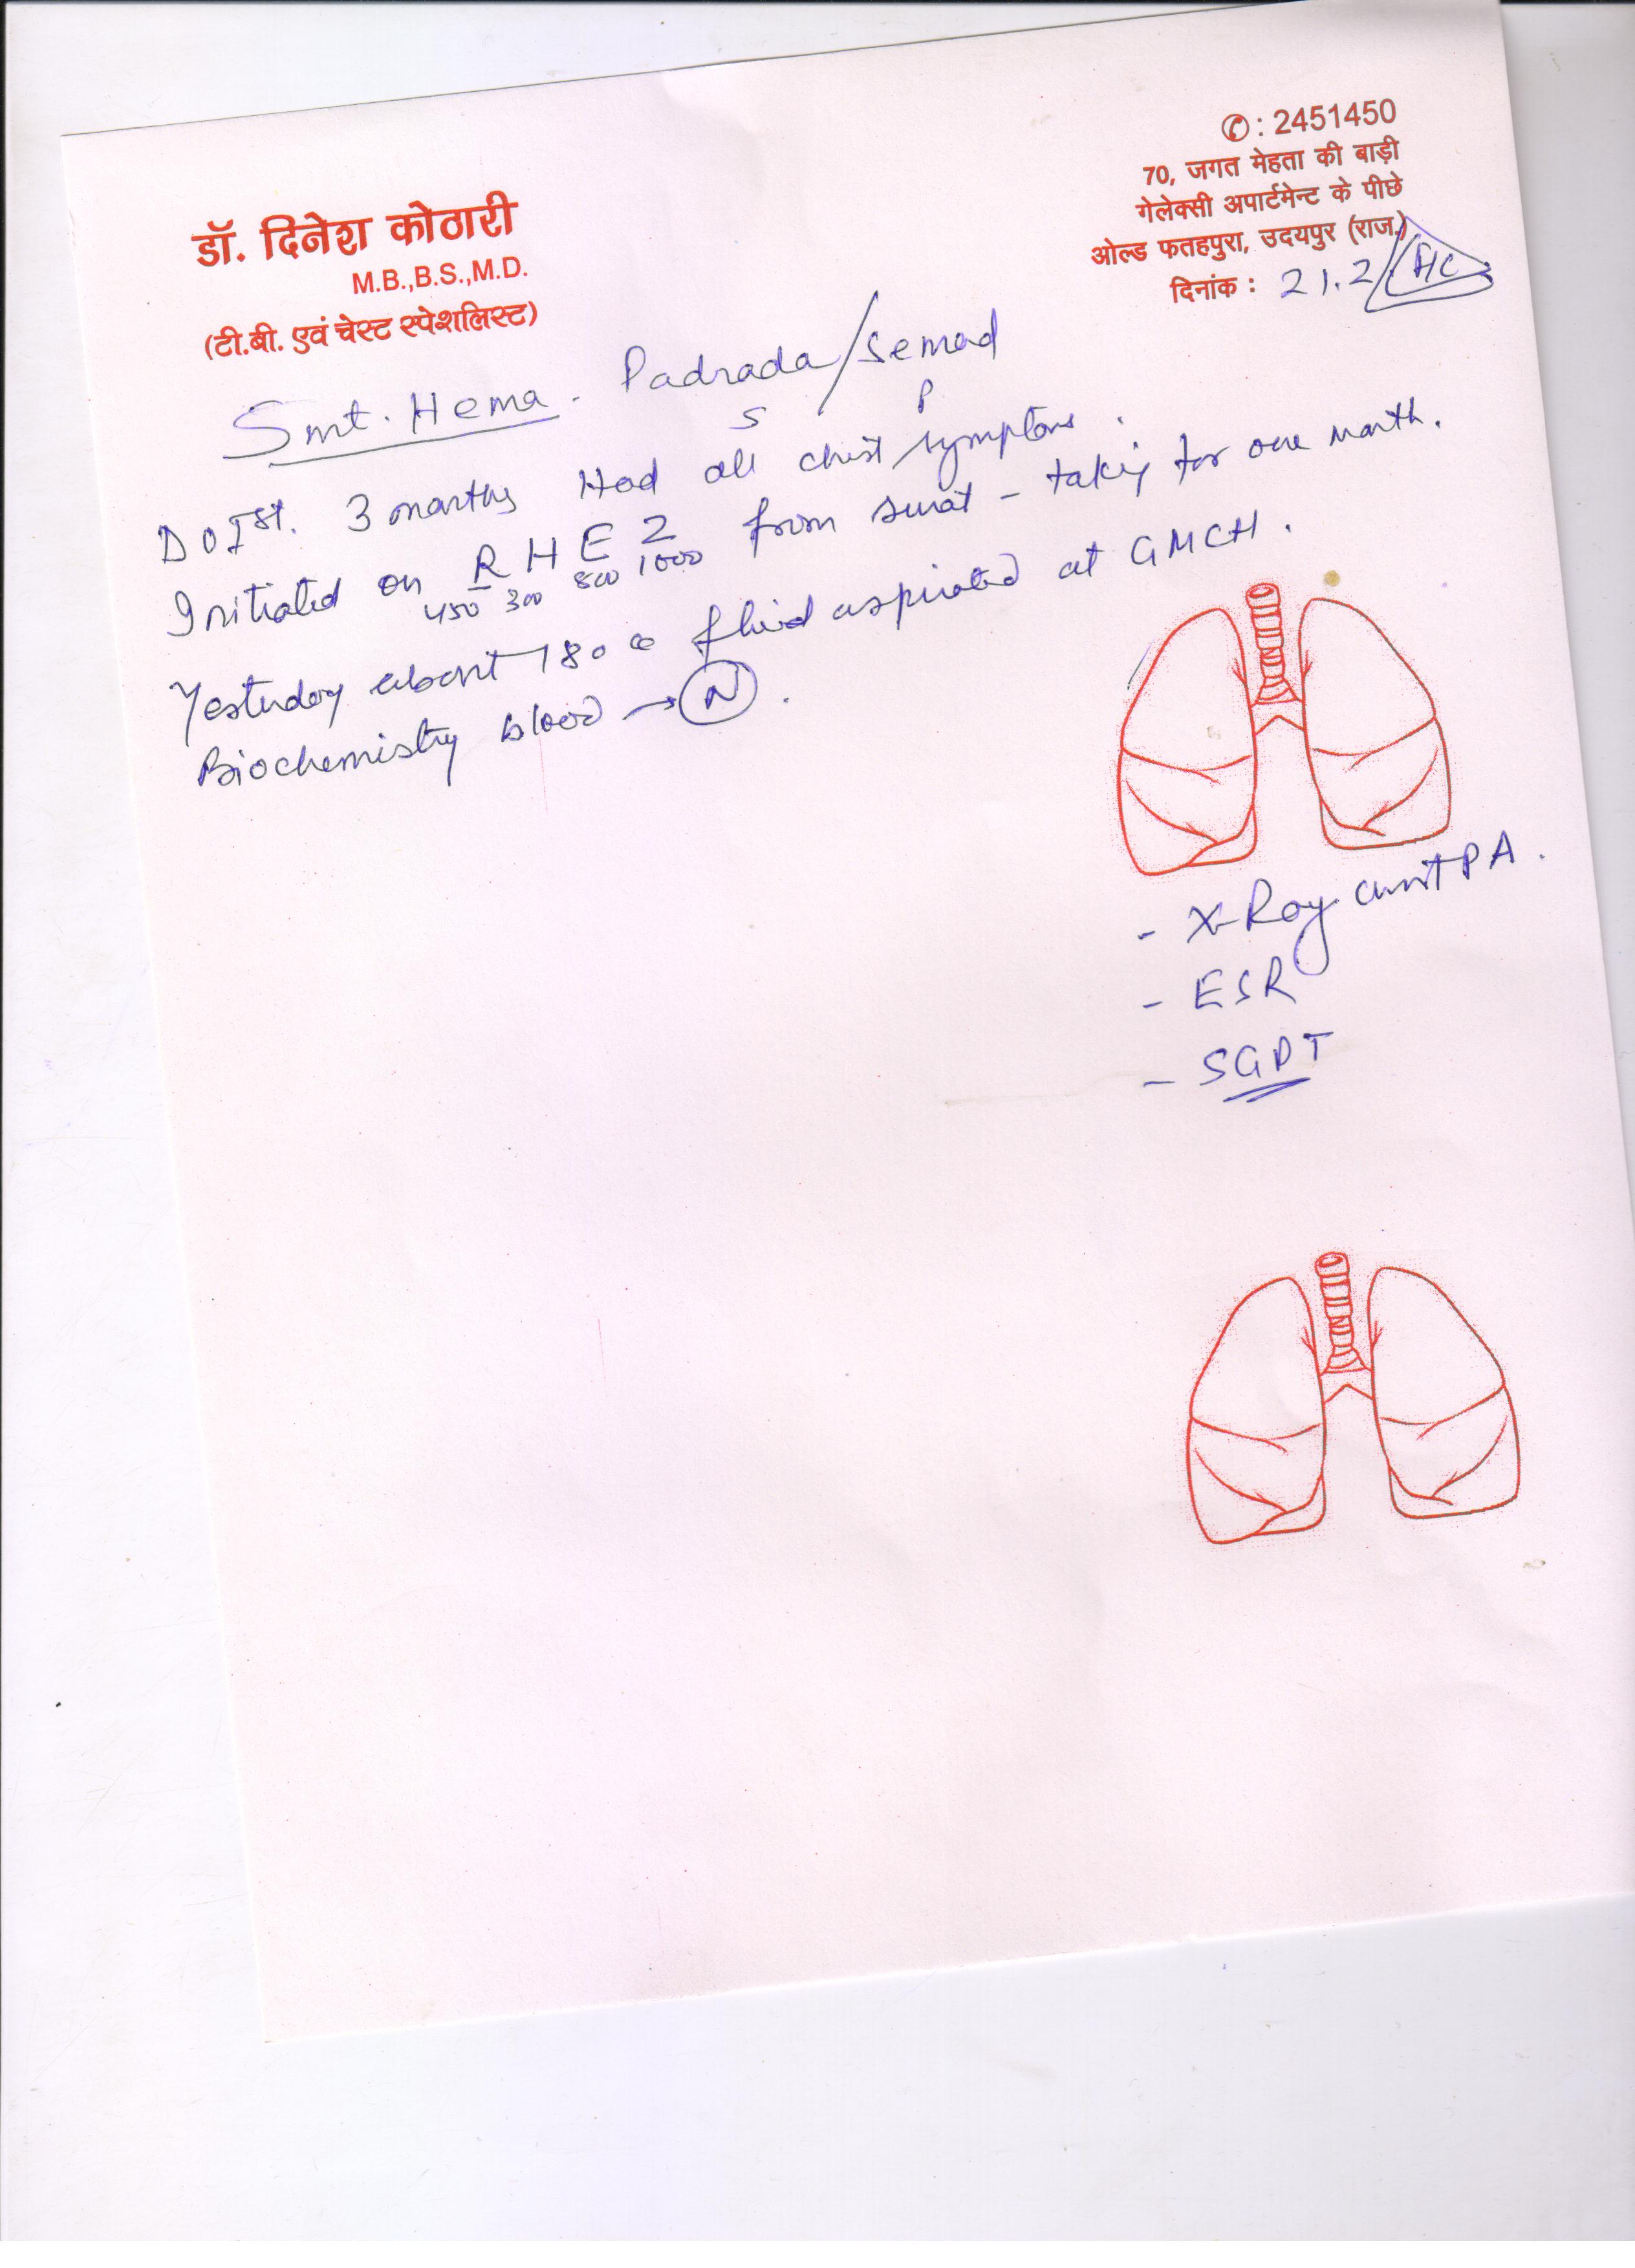 डॉ. दिनेश कोठारी
M.B.,B.S.,M.D.
(टी.बी. एवं चेस्ट स्पेशलिस्ट)
✆: 2451450
70, जगत मेहता की बाड़ी
गेलेक्सी अपार्टमेन्ट के पीछे
ओल्ड फतहपुरा, उदयपुर (राज.)
दिनांक : 21.2
Smt. Hema. Padrada/Semad
S P
3 months Had all chest symptoms.
Initiated on R H E Z from surat - taking for one month.
450 300 800 1000
Yesterday about 180 cc fluid aspirated at GMCH.
Biochemistry blood → N.
- X-Ray chest PA.
- ESR
- SGPT